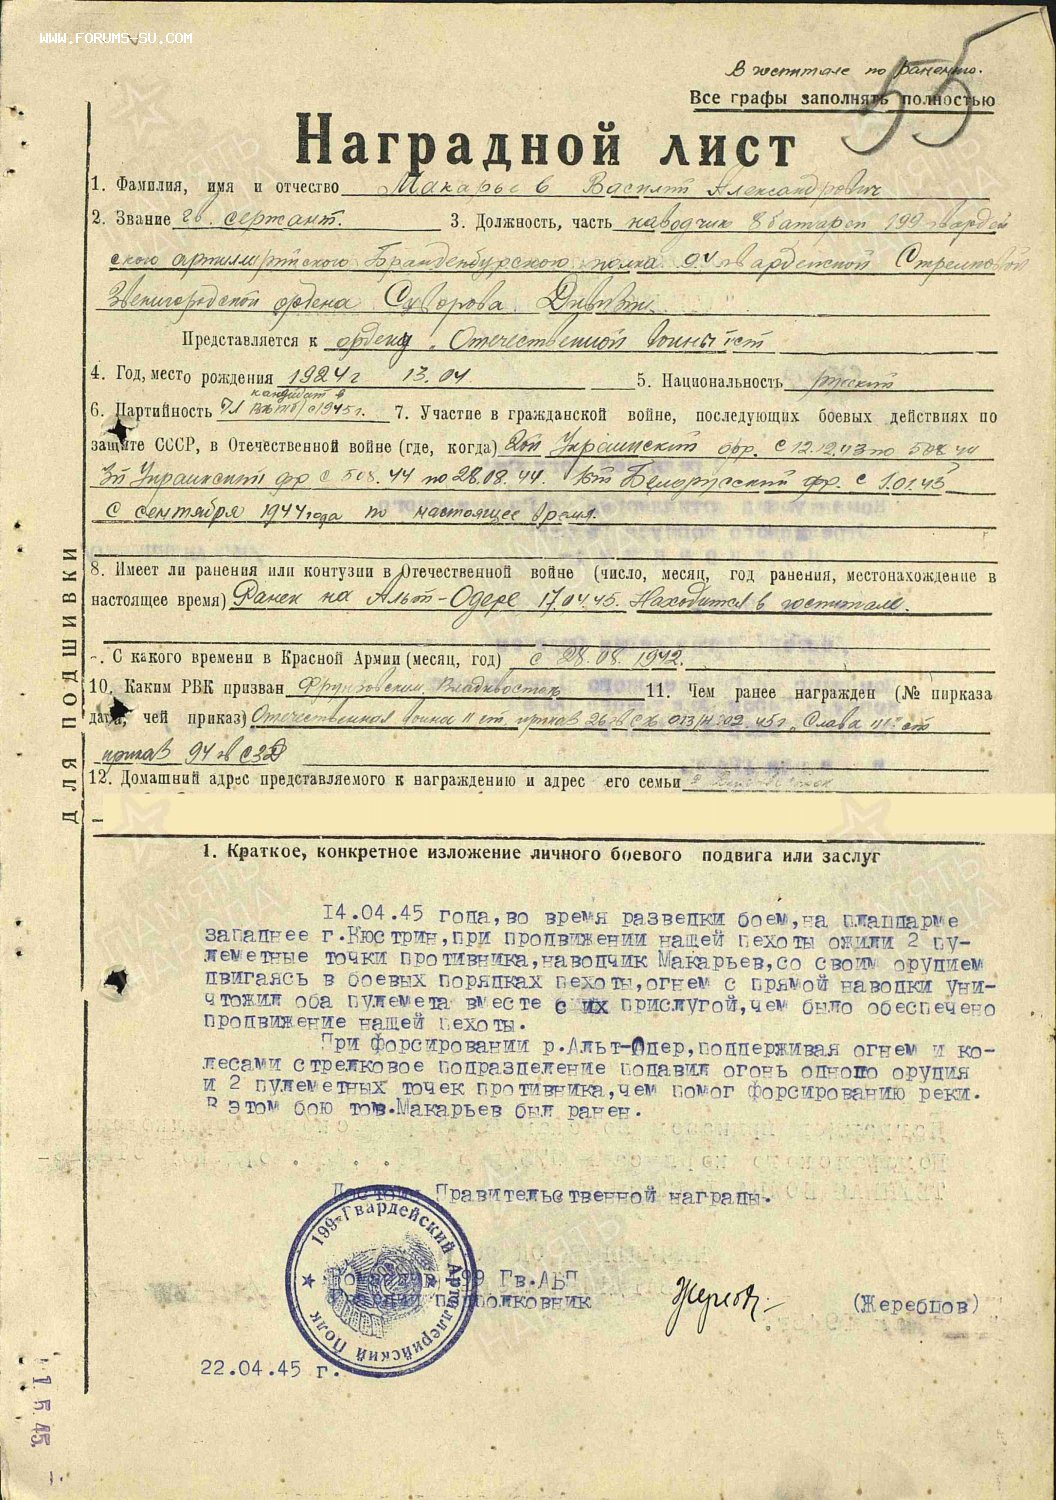 WWW.FORUMS-SU.COM
В госпитале по ранению.
55
Все графы заполнять полностью
Наградной лист
1. Фамилия, имя и отчество Макарьев Василий Александрович
2. Звание гв. сержант. 3. Должность, часть наводчик 8 батареи 199 гвардей
ского артиллерийского Бранденбургского полка 94 гвардейской Стрелковой
Звенигородской ордена Суворова Дивизии
Представляется к ордену „Отечественной войны I ст
4. Год, место рождения 1924 г 13.04 5. Национальность русский
кандидат в
6. Партийность ВКП(б) с 1945 г. 7. Участие в гражданской войне, последующих боевых действиях по
защите СССР, в Отечественной войне (где, когда) 2й Украинский фр. с 12.12.43 по 5 08 44
3й Украинский фр с 5 08. 44 по 28.08.44. 1й Белорусский фр. с
с сентября 1944 года по настоящее время.
8. Имеет ли ранения или контузии в Отечественной войне (число, месяц, год ранения, местонахождение в
настоящее время) Ранен на Альт-Одере 17.04.45. Находится в госпитале.
. С какого времени в Красной Армии (месяц, год) с 28.08. 1942.
10. Каким РВК призван Фрунзовским Владивосток 11. Чем ранее награжден (№ приказа
дата, чей приказ) Отечественная война II ст. приказ 26 гв СК 013/н 02 45 г. Слава III ст
приказ 94 гв СЗД
12. Домашний адрес представляемого к награждению и адрес его семьи
ДЛЯ ПОДШИВКИ
1. Краткое, конкретное изложение личного боевого подвига или заслуг
14.04.45 года, во время разведки боем, на плацдарме
западнее г.Кюстрин, при продвижении нашей пехоты ожили 2 пу-
леметные точки противника, наводчик Макарьев, со своим орудием
двигаясь в боевых порядках пехоты, огнем с прямой наводки уни-
чтожил оба пулемета вместе с их прислугой, чем было обеспечено
продвижение нашей пехоты.
При форсировании р.Альт-Одер, поддерживая огнем и ко-
лесами стрелковое подразделение подавил огонь одного орудия
и 2 пулеметных точек противника, чем помог форсированию реки.
В этом бою тов.Макарьев был ранен.
Достоин Правительственной награды.
199-Гвардейский Артиллерийский Полк
Командир 199 Гв.АБП
Гвардии подполковник (Жеребцов)
22.04.45 г.
1 5 45